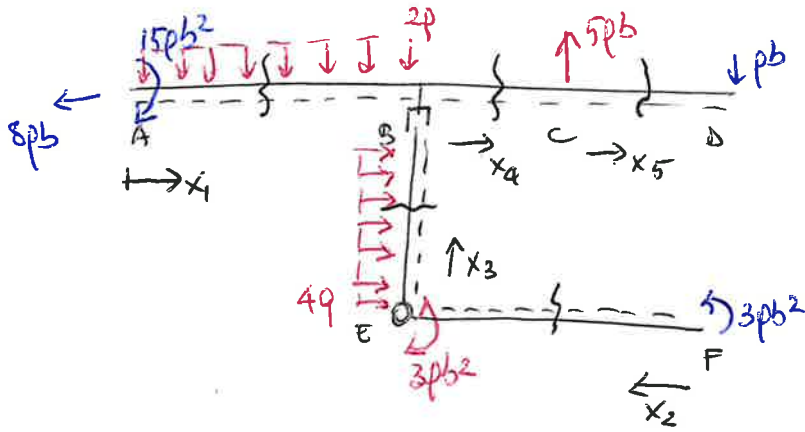 2p
15pb²
5pb
pb
8pb
A
B
C
D
x₁
x₄
x₅
x₃
4q
E
3pb²
3pb²
F
x₂